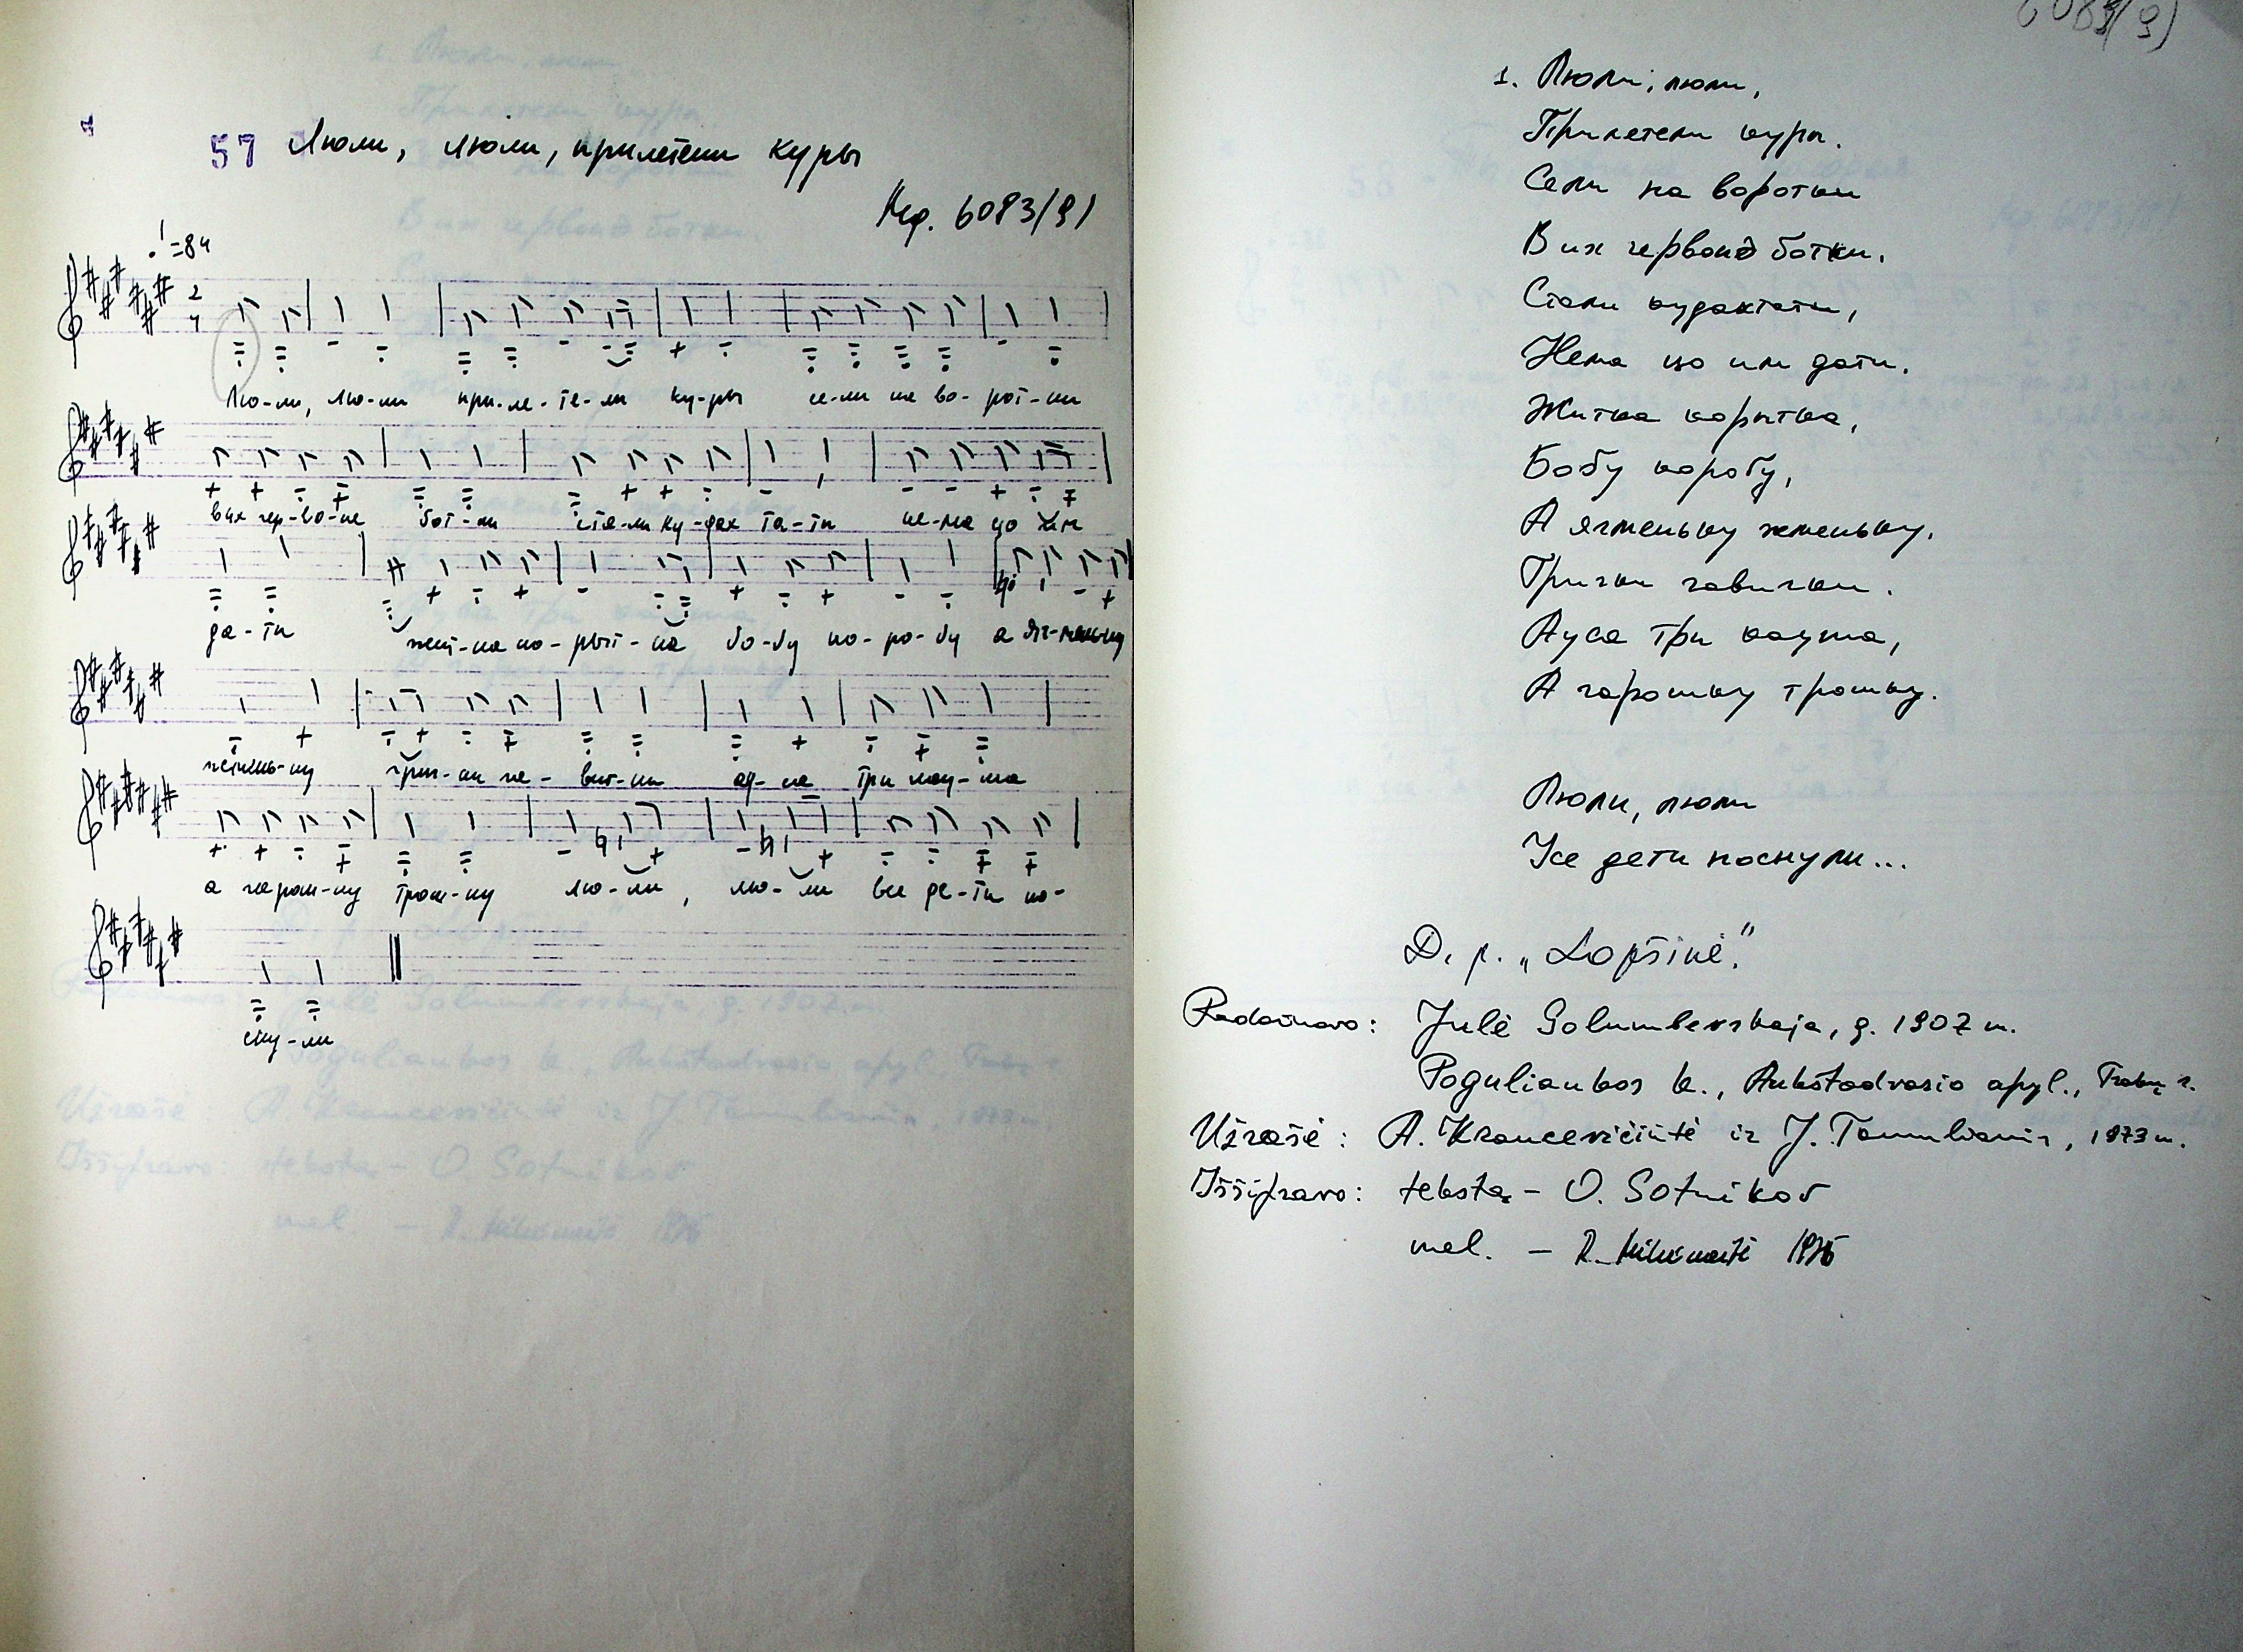 57 Люли, люли, прилетели куры
Мф. 6083/9/
♩=84
2
4
Лю-ли, лю-ли при-ле-те-ли ку-ры се-ли на во-рот-ки
вих чер-во-не бот-ки ста-ли ку-дах та-ти не-ма цо им
да-ти жит-ка ко-рыт-ка бо-бу ко-ро-бу а яч-меньку
жмень-ку греч-ки ча- вич-ки ад-са три кау-ша
а гарош-ку трош-ку лю-ли, лю-ли все де-ти по-
сну-ли
6083(9)
1. Люли, люли,
Прилетели куры.
Сели на воротки
В их червонэ ботки.
Стали кудактати,
Нема цо им дати.
Житка корытка,
Бобу коробу,
А ячменьку жменьку.
Грички чавички.
Ауса три кауша,
А гарошку трошку.
Люли, люли
Усе дети поснули...
D. p. „Lopšinė."
Padainavo: Julė Golumbevskaja, g. 1907 m.
Poguliankos k., Aukštadvario apyl., Trakų r.
Užrašė: A. Krancevičiūtė ir J. 1973 m.
Iššifravo: tekstą – O. Sotnikov
mel. – R.